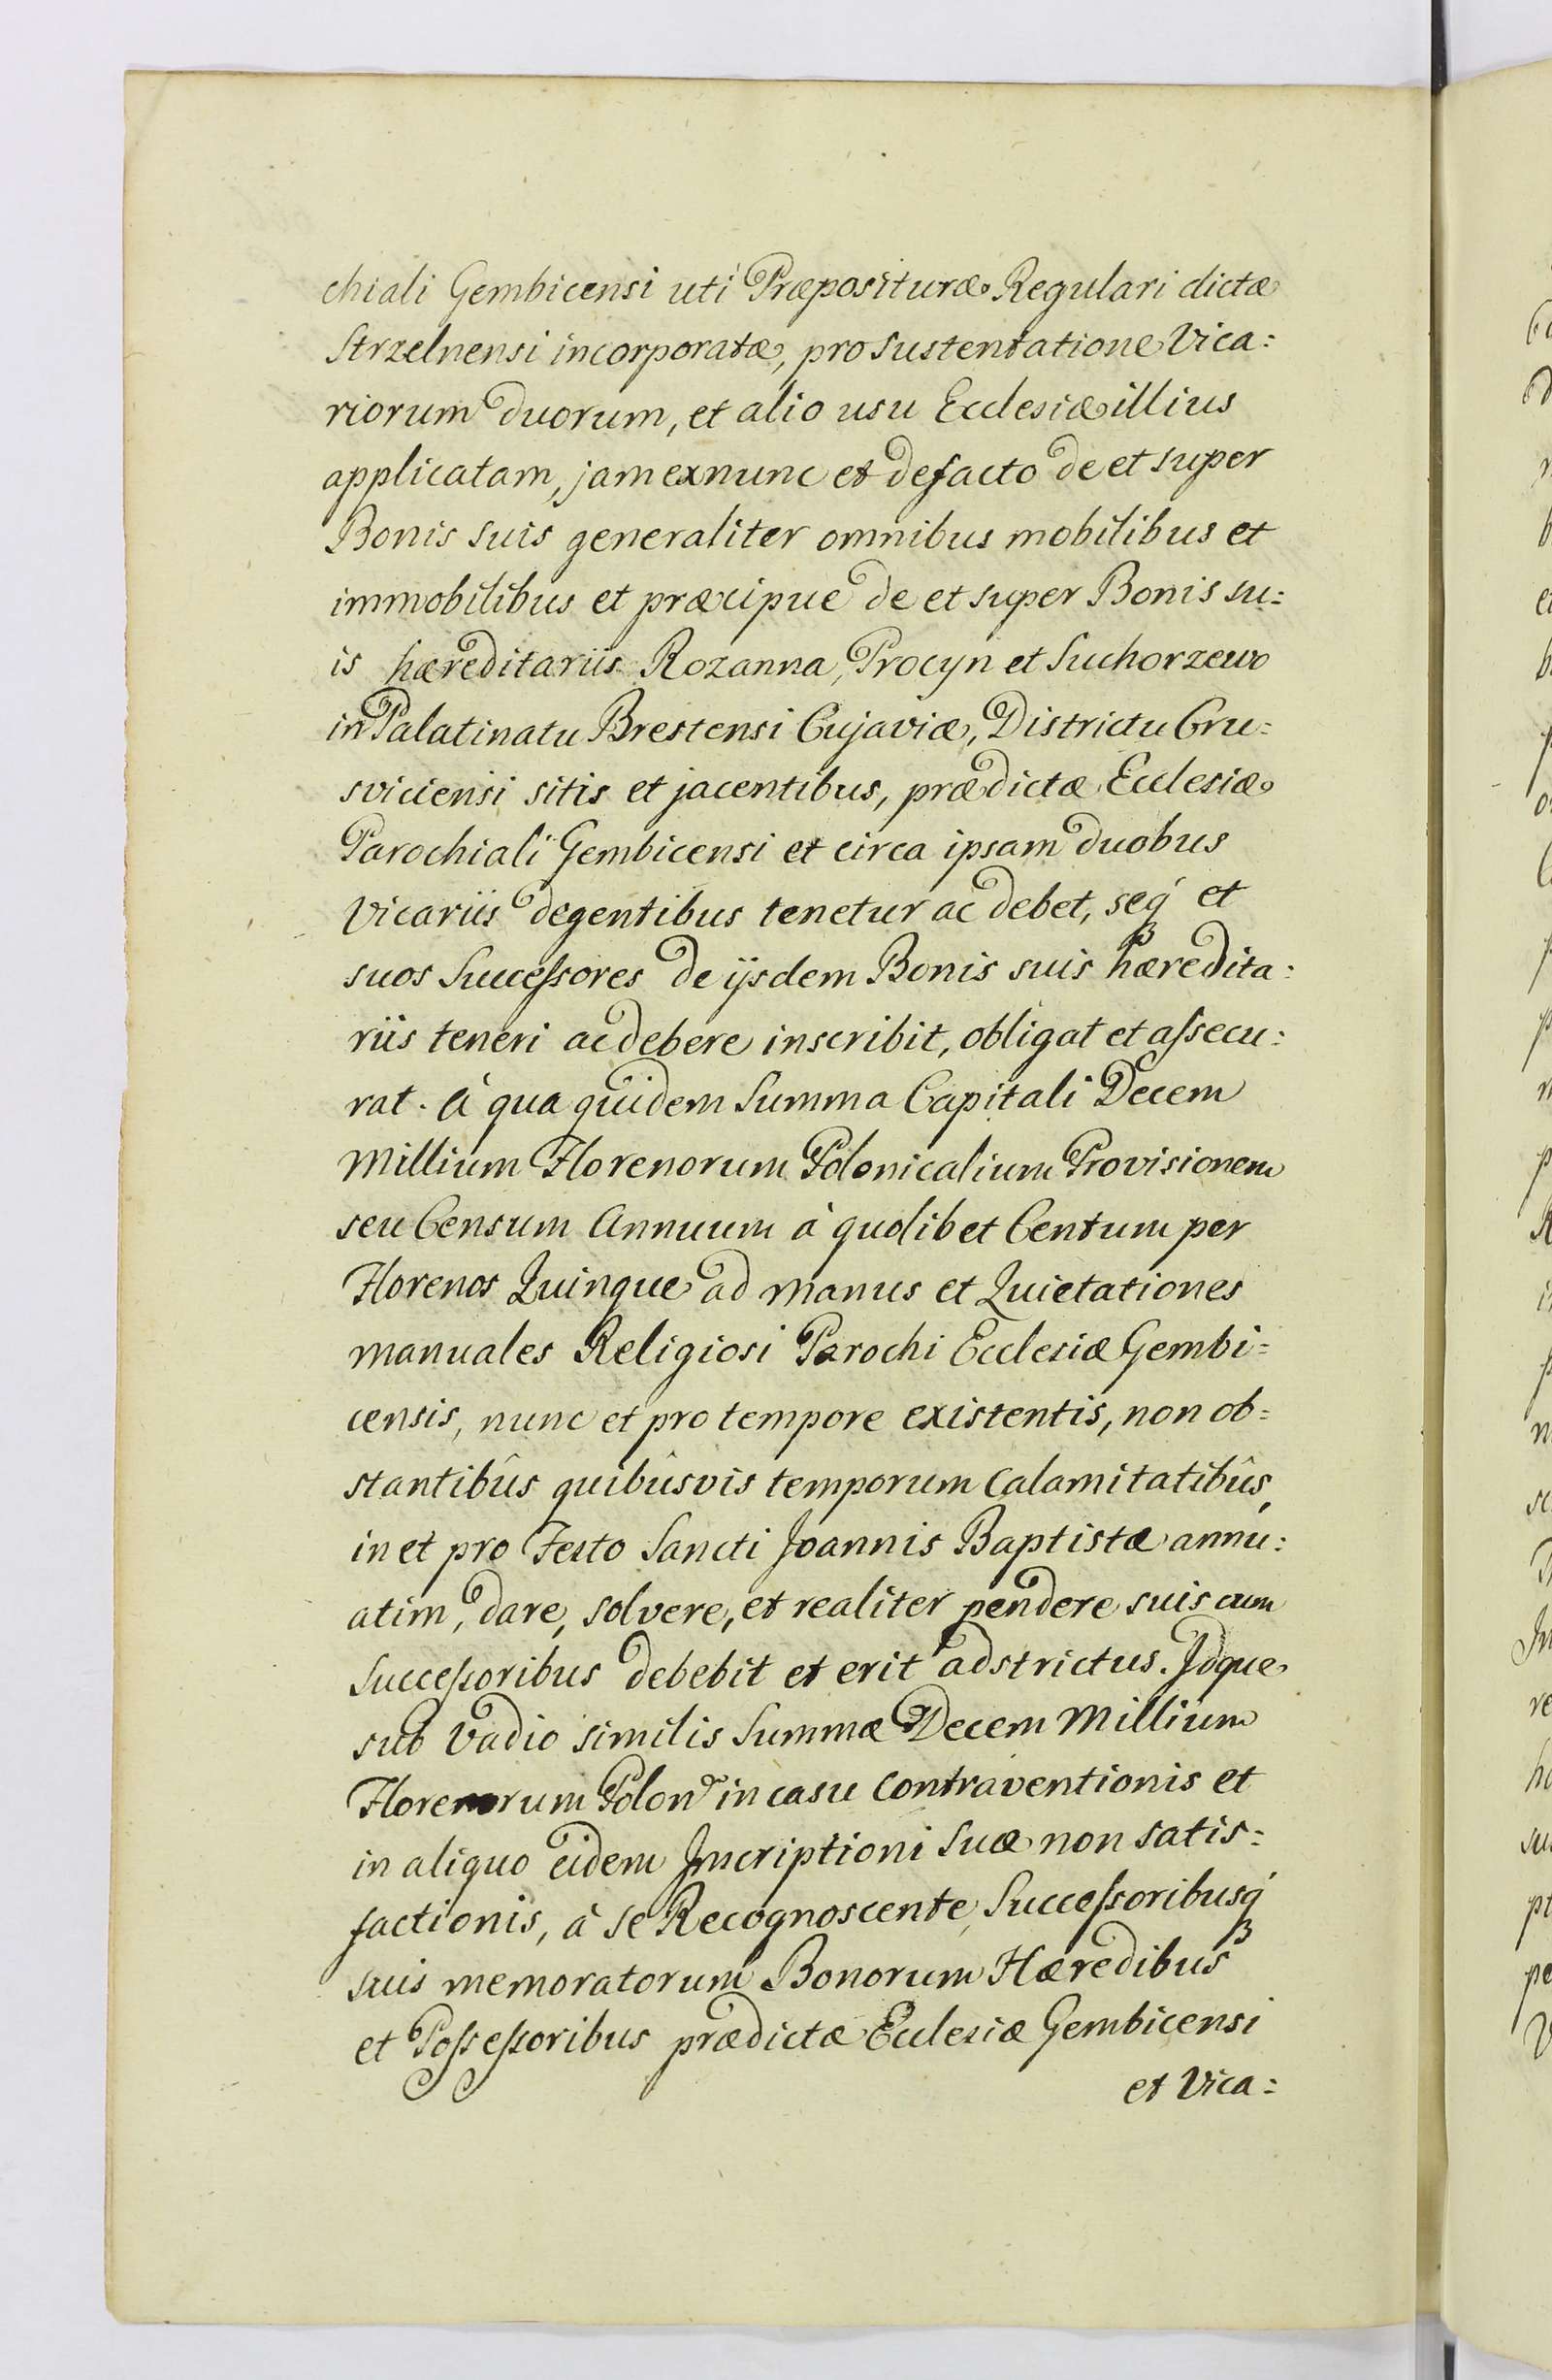 chiali Gembicensi uti Præpositura Regulari dictæ
Strzelnensi incorporatæ, pro sustentatione Vica:
riorum duorum, et alio usu Ecclesiæ illius
applicatam, jam ex nunc et de facto de et super
Bonis suis generaliter omnibus mobilibus et
immobilibus et præcipue de et super Bonis su:
is hæreditariis Rozanna, Procyn et Suchorzewo
in Palatinatu Brestensi Cujaviæ, Districtu Cru:
sviciensi sitis et jacentibus, prædictæ Ecclesiæ
Parochiali Gembicensi et circa ipsam duobus
Vicariis degentibus tenetur ac debet, seq́ et
suos Successores de ijsdem Bonis suis hæredita:
riis teneri ac debere inscribit, obligat et assecu:
rat. à qua quidem Summa Capitali Decem
Millium Florenorum Polonicalium Provisionem
seu Censum Annuum à quolibet Centum per
Florenos Quinque ad manus et Quietationes
manuales Religiosi Parochi Ecclesiæ Gembi=
censis, nunc et pro tempore existentis, non ob=
stantibûs quibûsvis temporum Calamitatibûs,
in et pro Festo Sancti Joannis Baptistæ annu:
atim, dare, solvere, et realiter pendere suis cum
Successoribus debebit et erit adstrictus. Idque
sub Vadio similis Summæ Decem Millium
Florenorum Polon in casu Contraventionis et
in aliquo eidem Inscriptioni Suæ non satis=
factionis, à se Recognoscente, Successoribusq́
suis memoratorum Bonorum Hæredibus
et Possessoribus prædictæ Ecclesiæ Gembicensi
et Vica: